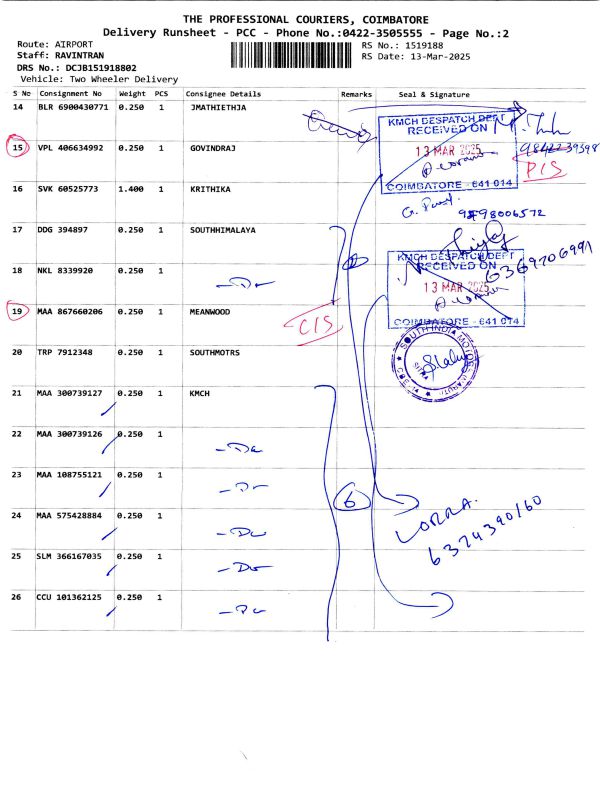 THE PROFESSIONAL COURIERS, COIMBATORE
Delivery Runsheet - PCC - Phone No.:0422-3505555 - Page No.:2
Route: AIRPORT
RS No.: 1519188
Staff: RAVINTRAN
RS Date: 13-Mar-2025
DRS No.: DCJB151918802
Vehicle: Two Wheeler Delivery
S No Consignment No Weight PCS Consignee Details Remarks Seal & Signature
14 BLR 6900430771 0.250 1 JMATHIETHJA
KMCH DESPATCH DEPT
RECEIVED ON
15 VPL 406634992 0.250 1 GOVINDRAJ
13 MAR 2025
COIMBATORE - 641 014
16 SVK 60525773 1.400 1 KRITHIKA
17 DDG 394897 0.250 1 SOUTHHIMALAYA
KMCH DESPATCH DEPT
RECEIVED ON
6369706991
18 NKL 8339920 0.250 1
13 MAR 2025
19 MAA 867660206 0.250 1 MEANWOOD
C/S
COIMBATORE - 641 014
20 TRP 7912348 0.250 1 SOUTHMOTRS
21 MAA 300739127 0.250 1 KMCH
22 MAA 300739126 0.250 1
23 MAA 108755121 0.250 1
6
24 MAA 575428884 0.250 1
6374390160
25 SLM 366167035 0.250 1
26 CCU 101362125 0.250 1